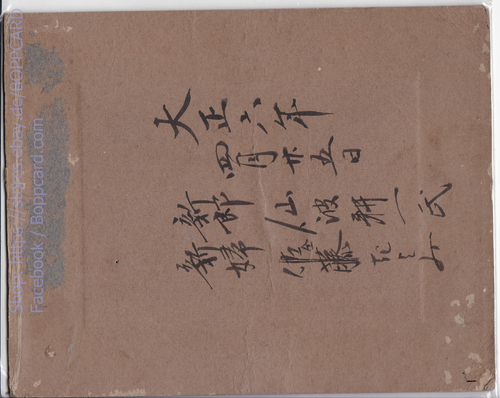 大正六年
四月廿五日
新郎 仙波耕一氏
新婦 佐藤
Shop: https://stores.ebay.de/BOPPCARD
Facebook / Boppcard.com